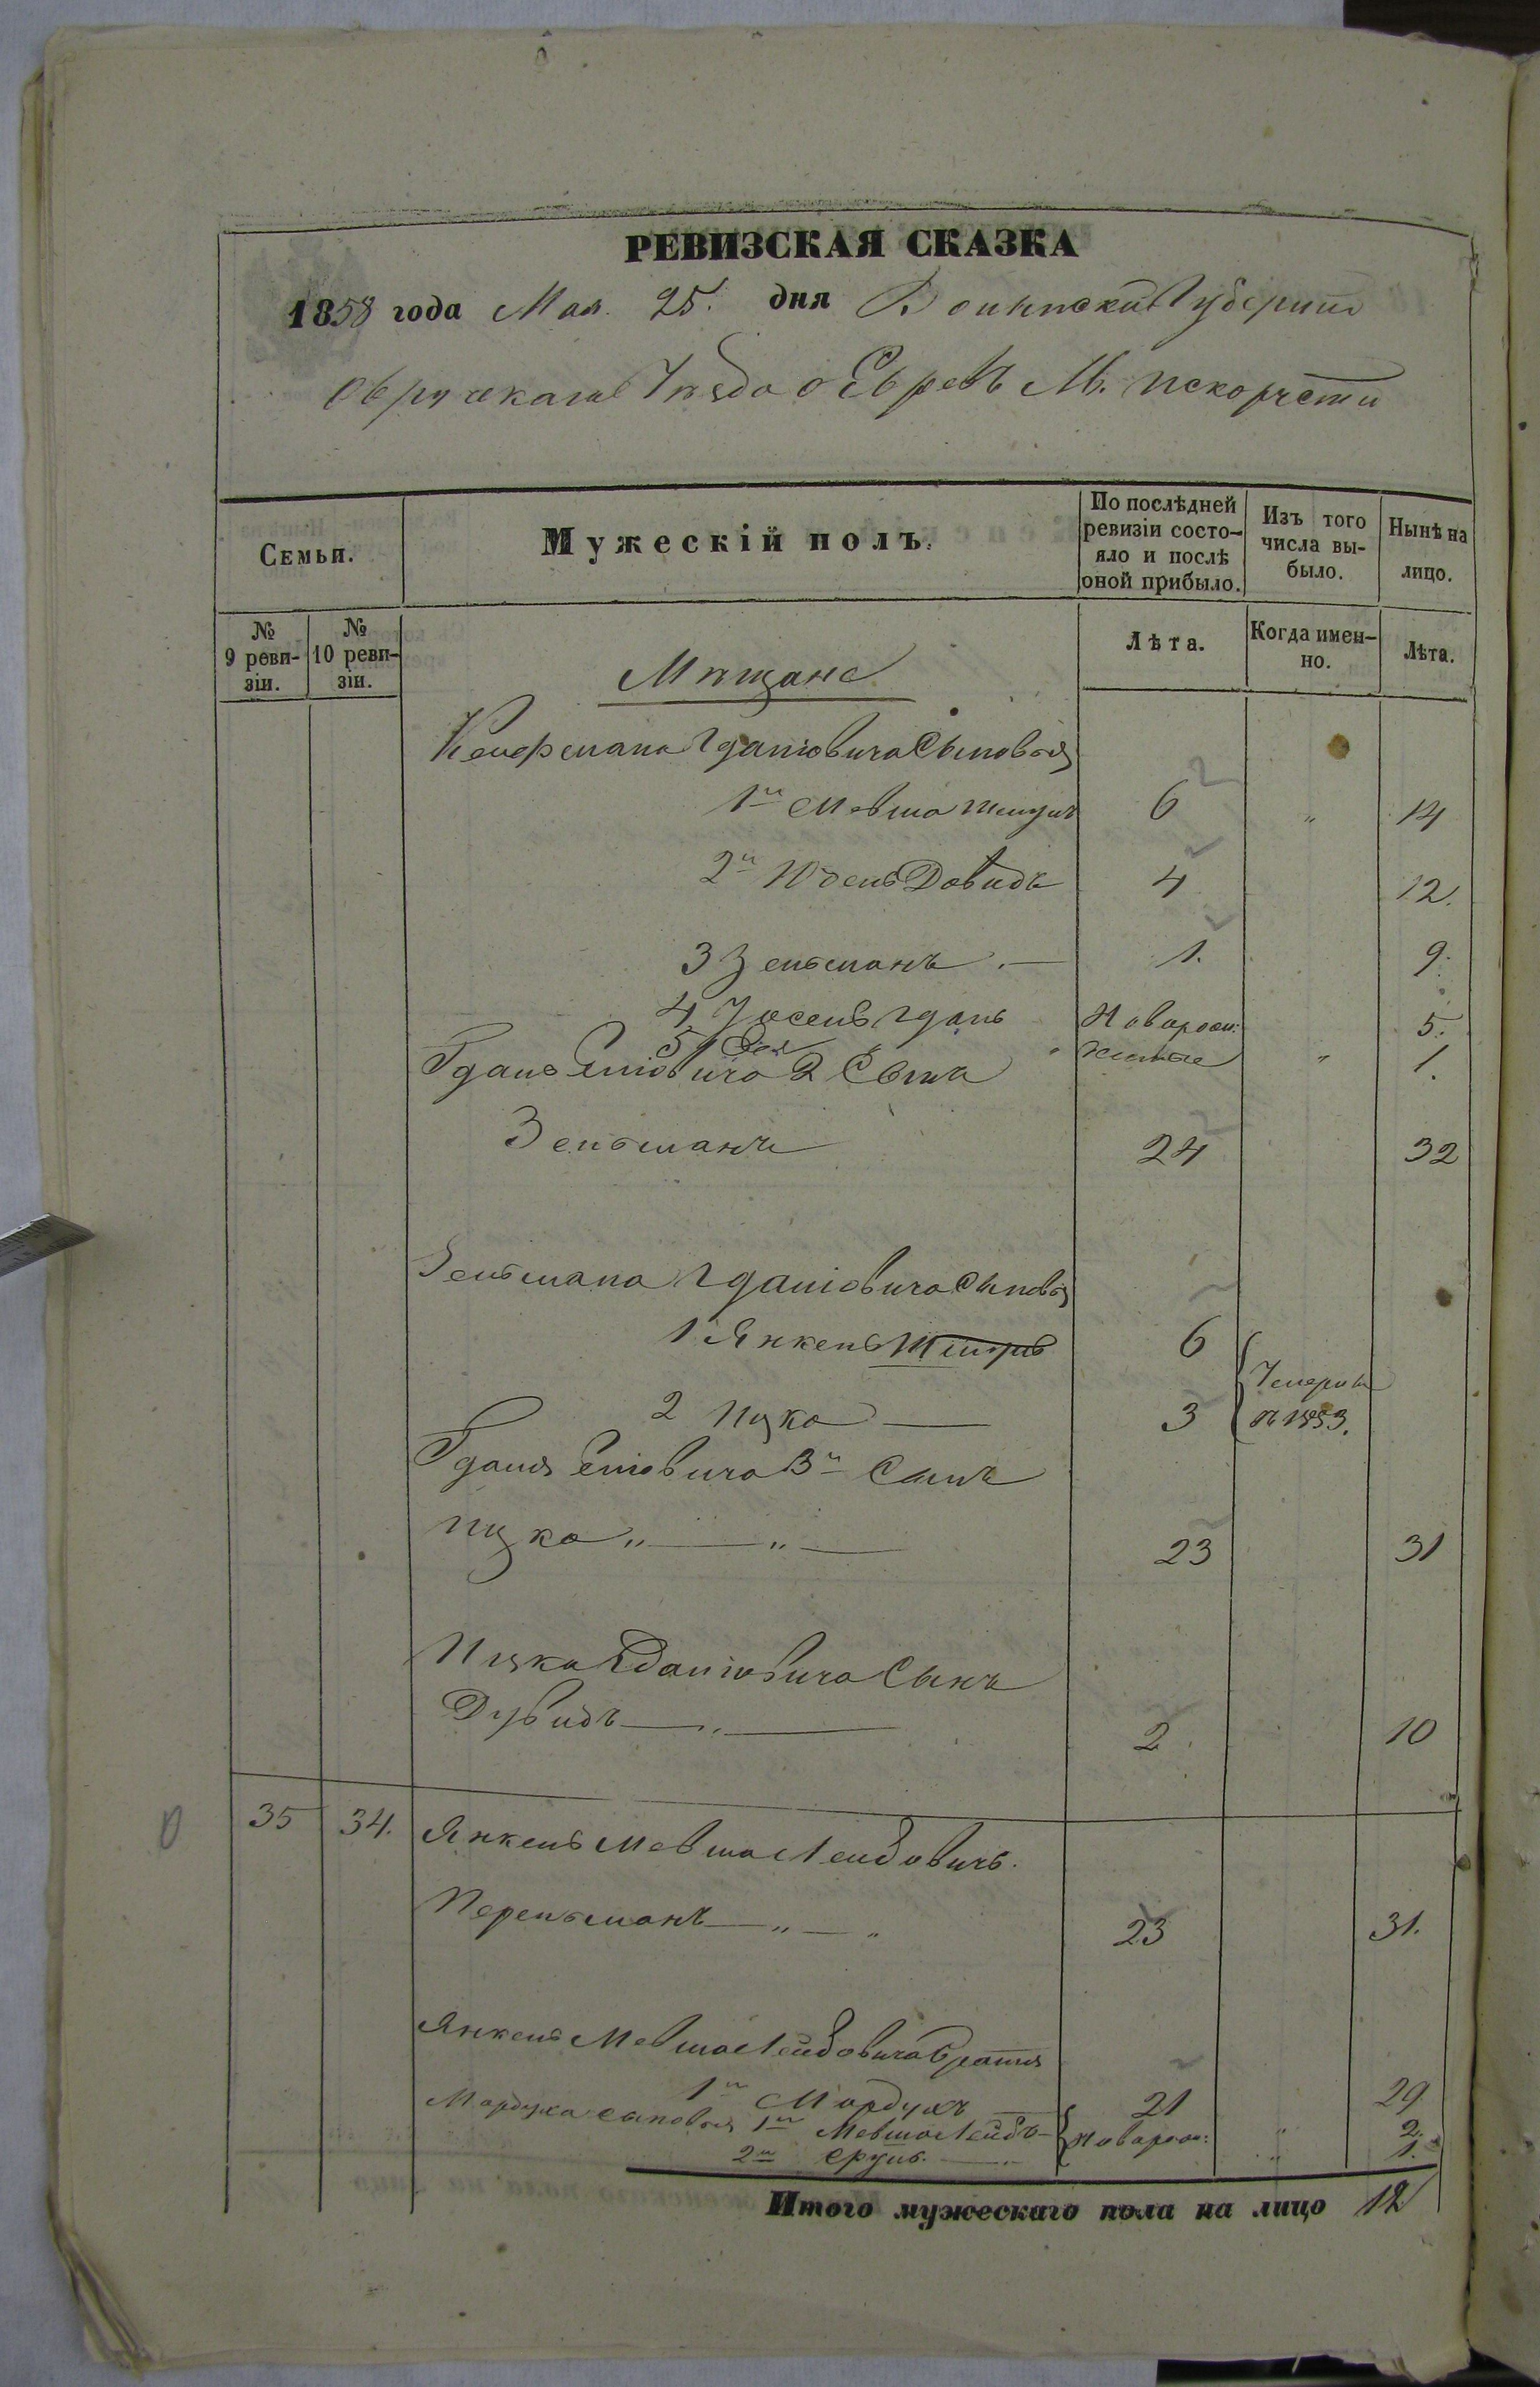 РЕВИЗСКАЯ СКАЗКА
1858 года Мая 25. дня Волынской Губернiи
Овручскаго Уѣзда о Евреѣ М. Искорости
Семьи.
Мужескій полъ.
По послѣдней ревизіи состояло и послѣ оной прибыло.
Изъ того числа выбыло.
Нынѣ на лицо.
№ 9 ревизіи.
№ 10 ревизіи.
Лѣта.
Когда именно.
Лѣта.
Мѣщане
Гдаліовича Сыновья
1й Мевша 6 " 14
2й Іосель Довидъ 4 12.
3 Зельманъ — 1. 9.
4 Іосель Гдаль Новорож: 5.
5 " денные " 1.
Гдаля Еліовича 2 Сынъ
Зельманъ 24 32
Зельмана Гдаліовича Сыновья
1 Янкель 6
2 Ицко — 3 { Умерли въ 1853.
Гдаля Еліовича 3й Сынъ
Ицко „ — „ — 23 31
Ицка Гдаліовича Сынъ
Дувидъ — „ — 2 10
35 34. Янкель Мевша Лейбовичъ.
Перельманъ — „ — „ 23 31.
Янкеля Мевша Лейбовича братья
1й Мордухъ — 21 29.
Мордуха сыновья 1й Мевша Лейбъ — { Новорож: „ 2.
2й Сруль. — „ 1.
Итого мужескаго пола на лицо 12